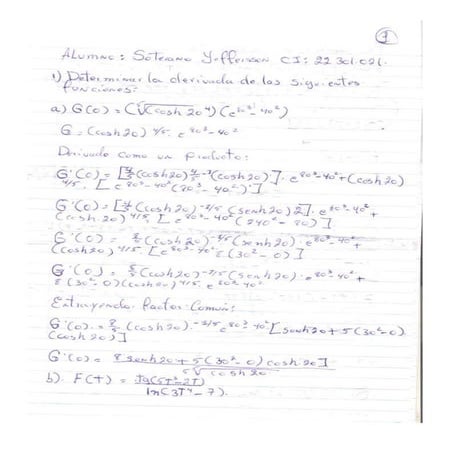 1
Alumno: Soterano Yefferson CI: 22 301.021.
1) Determinar la derivada de las siguientes
funciones:
a) G(0) = (⁵√(cosh 20⁴) (e⁸⁰³-40²)
G = (cosh20) ⁴/⁵. e⁸⁰³-⁴⁰²
Derivado como un producto:
G'(0) = [4/5 (cosh20) 4/5-1 (cosh20)']. e⁸⁰³-⁴⁰² + (cosh20)
⁴/⁵. [e⁸⁰³-⁴⁰² (80³-40²)']
G'(0) = [4/5 (cosh20)-¹/⁵ (senh20)2]. e⁸⁰³-⁴⁰² +
(cosh20)⁴/⁵. [e⁸⁰³-⁴⁰² (240²-80)]
G'(0) = 8/5 (cosh20)-¹/⁵ (senh20). e⁸⁰³-⁴⁰² +
(cosh20)⁴/⁵. [e⁸⁰³-⁴⁰² 8(30²-0)]
G'(0) = 8/5 (cosh20)-¹/⁵ (senh20). e⁸⁰³-⁴⁰² +
8(30²-0)(cosh20)⁴/⁵. e⁸⁰³-⁴⁰²
Extrayendo factor Común:
G'(0) = 8/5 (cosh20)-¹/⁵ e⁸⁰³-⁴⁰² [senh20+5(30²-0)
(cosh20)]
G'(0) = 8 senh20+5(30²-0)cosh20]
5 ⁵√cosh20
b). F(T) = Tg(5T³-2T)
ln(3T⁴-7).